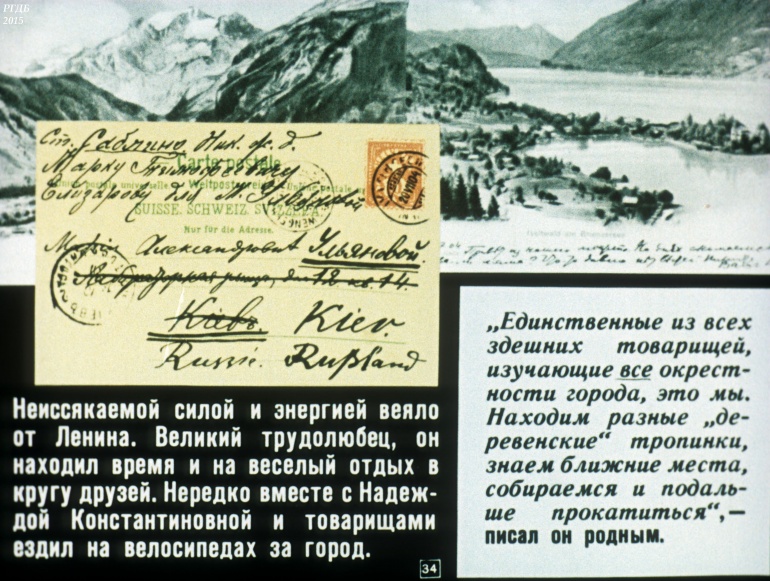 РГДБ
2015
Ст. Саблино Ник. ж. д.
Марку Тимофеевичу
Carte postale
Weltpostverein
Елизарову для М.
SUISSE. SCHWEIZ. SVIZZERA.
Nur für die Adresse.
Марiи Александровнѣ Ульяновой.
Лабораторная улица, д. 12 кв. 14.
Кiевъ. Kiev.
Russie. Rußland
„Единственные из всех
здешних товарищей,
изучающие все окрест-
ности города, это мы.
Находим разные „де-
ревенские“ тропинки,
знаем ближние места,
собираемся и подаль-
ше прокатиться“,—
писал он родным.
Неиссякаемой силой и энергией веяло
от Ленина. Великий трудолюбец, он
находил время и на веселый отдых в
кругу друзей. Нередко вместе с Надеж-
дой Константиновной и товарищами
ездил на велосипедах за город.
34